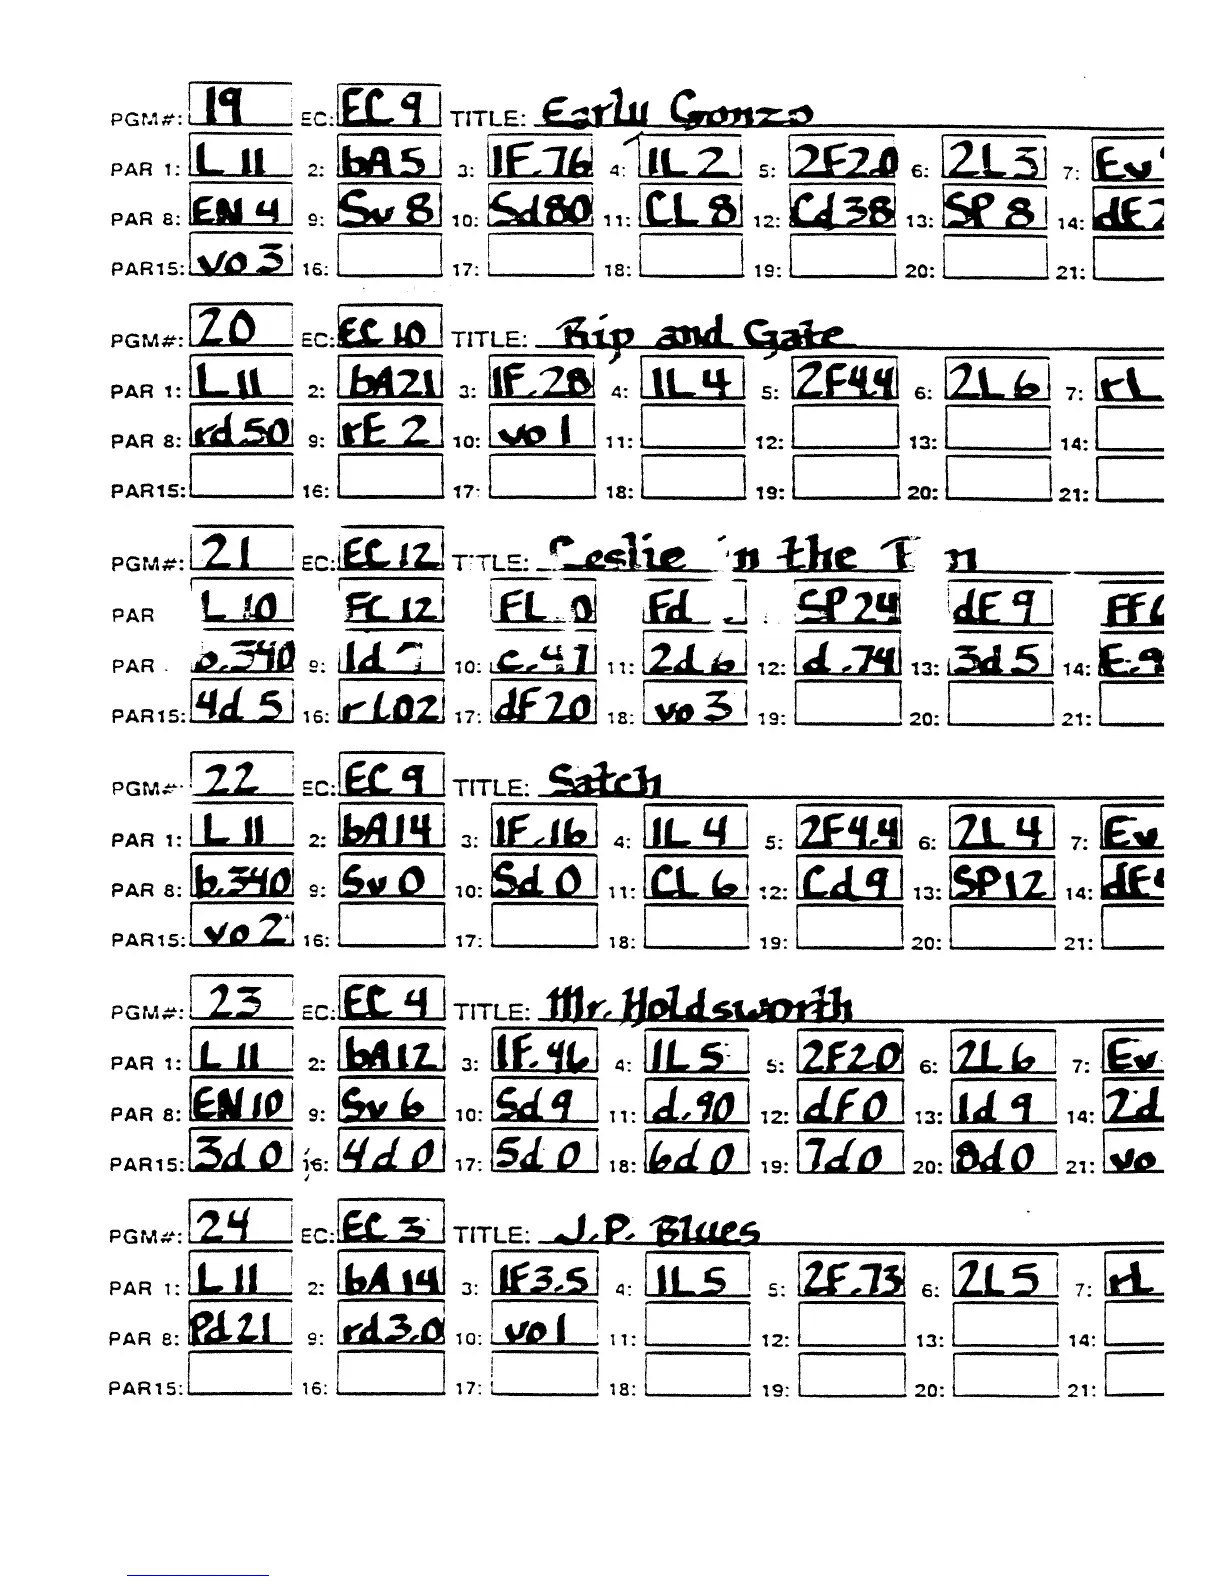 PGM#: 19 EC: EC 9 TITLE: Early Gonzo
PAR 1: L 11 2: bA 5 3: 1F.76 4: 1L 2 5: 2F2.0 6: 2L 3 7: Ev
PAR 8: EN 4 9: Sv 8 10: Sd80 11: CL 8 12: Cd38 13: SP 8 14: dE
PAR15: vo 3 16: 17: 18: 19: 20: 21:
PGM#: 20 EC: EC 10 TITLE: Rip and Gate
PAR 1: L 11 2: bA21 3: 1F.28 4: 1L 4 5: 2F4.4 6: 2L 6 7: rL
PAR 8: rd.50 9: rE 2 10: vo 1 11: 12: 13: 14:
PAR15: 16: 17: 18: 19: 20: 21:
PGM#: 21 EC: EC 12 TITLE: Leslie in the
PAR L 10 EC 12 FL Fd SP 24 dE 9 FF
PAR b.340 9: 1d 10: c.47 11: 2d 6 12: d.74 13: 3d 5 14: E.9
PAR15: 4d 5 16: rL02 17: dF20 18: vo 3 19: 20: 21:
PGM# 22 EC: EC 9 TITLE: Satch
PAR 1: L 11 2: bA14 3: 1F.16 4: 1L 4 5: 2F4.4 6: 2L 4 7: Ev
PAR 8: b.340 9: Sv 0 10: Sd 0 11: CL 6 12: Cd 9 13: SP12 14: dE
PAR15: vo 2 16: 17: 18: 19: 20: 21:
PGM#: 23 EC: EC 4 TITLE: Mr. Holdsworth
PAR 1: L 11 2: bA12 3: 1F.46 4: 1L 5 5: 2F2.0 6: 2L 6 7: Ev
PAR 8: EN10 9: Sv 6 10: Sd 9 11: d.90 12: dF0 13: 1d 9 14: 2d
PAR15: 3d 0 16: 4d 0 17: 5d 0 18: 6d 0 19: 7d 0 20: 8d0 21: vo
PGM#: 24 EC: EC 3 TITLE: J.P. Blues
PAR 1: L 11 2: bA 14 3: 1F3.5 4: 1L5 5: 2F.73 6: 2L5 7: rL
PAR 8: Pd21 9: rd3.0 10: vo 1 11: 12: 13: 14:
PAR15: 16: 17: 18: 19: 20: 21: